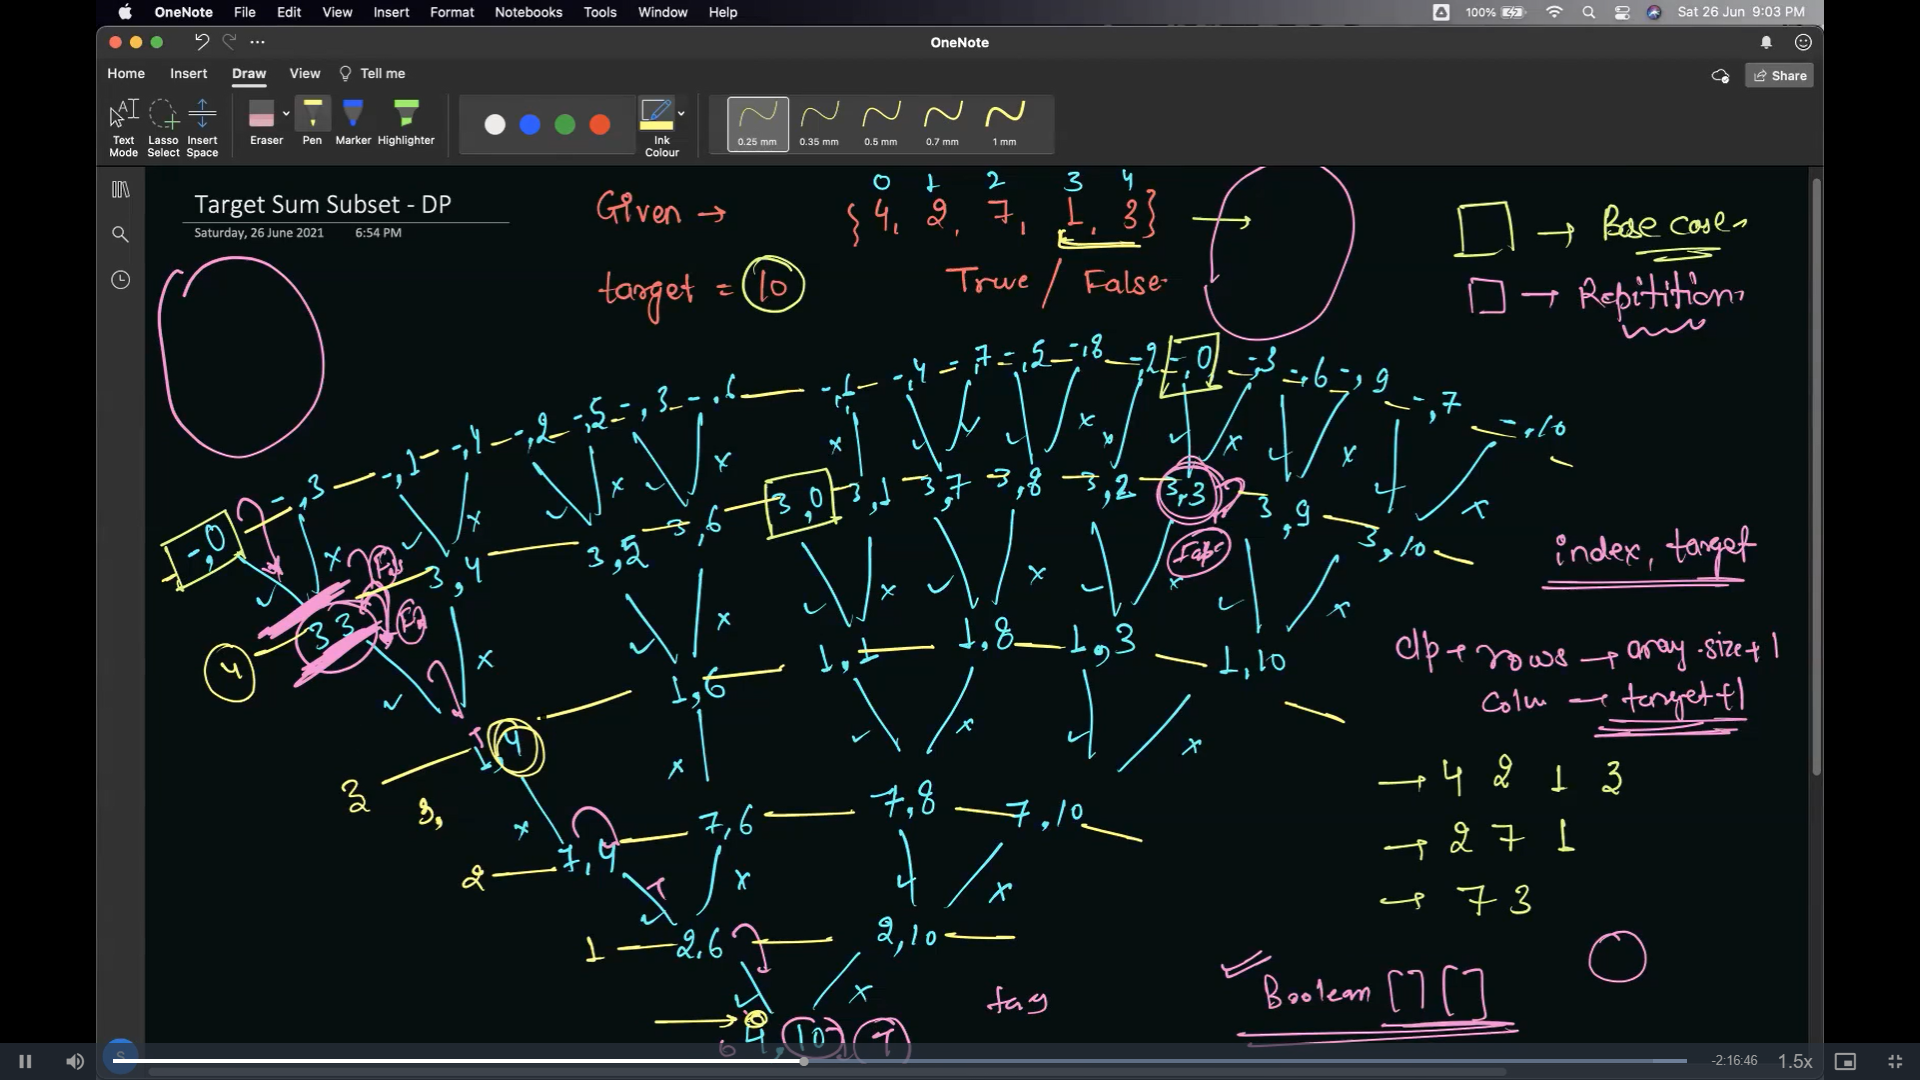 OneNote File Edit View Insert Format Notebooks Tools Window Help 100% Sat 26 Jun 9:03 PM
OneNote
Home Insert Draw View Tell me Share
Text Mode Lasso Select Insert Space Eraser Pen Marker Highlighter Ink Colour 0.25 mm 0.35 mm 0.5 mm 0.7 mm 1 mm
Target Sum Subset - DP
Saturday, 26 June 2021 6:54 PM
0 1 2 3 4
Given → {4, 2, 7, 1, 3} →
target = 10 True / False
→ Base case
→ Repitition
-,0 -,3 -,1 -,4 -,2 -,5 -,3 -,6 -,1 -,4 -,7 -,5 -,8 -,2 -,0 -,3 -,6 -,9 -,7 -,10
4 3,3 3,4 3,5 3,6 3,0 3,1 3,7 3,8 3,2 3,3 3,9 3,10
3 1,4 1,6 1,1 1,8 1,3 1,10
3,
2 7,4 7,6 7,8 7,10
1 2,6 2,10
→ 0 4,10 T
index, target
dp → rows → array.size+1
colm → target+1
→ 4 2 1 3
→ 2 7 1
→ 7 3
Boolean [][]
-2:16:46 1.5x